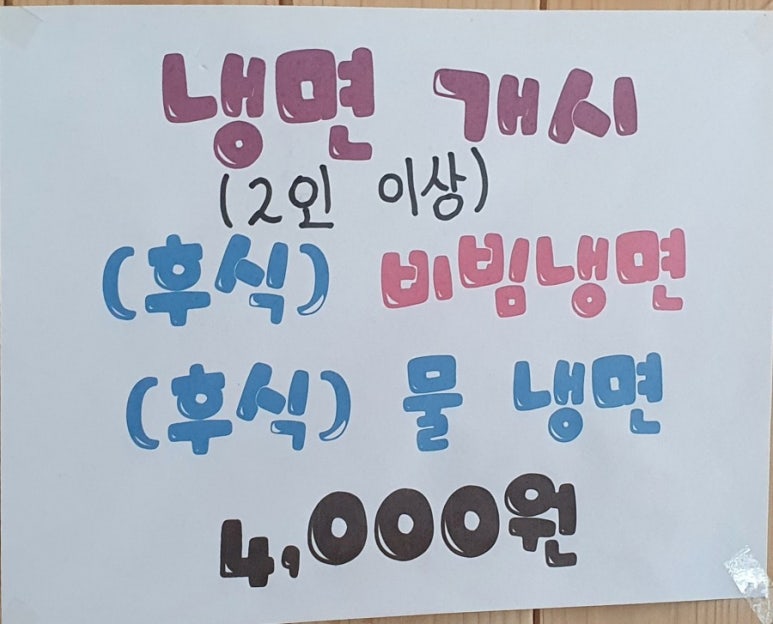 냉면 개시
(2인 이상)
(후식) 비빔냉면
(후식) 물 냉면
4,000원